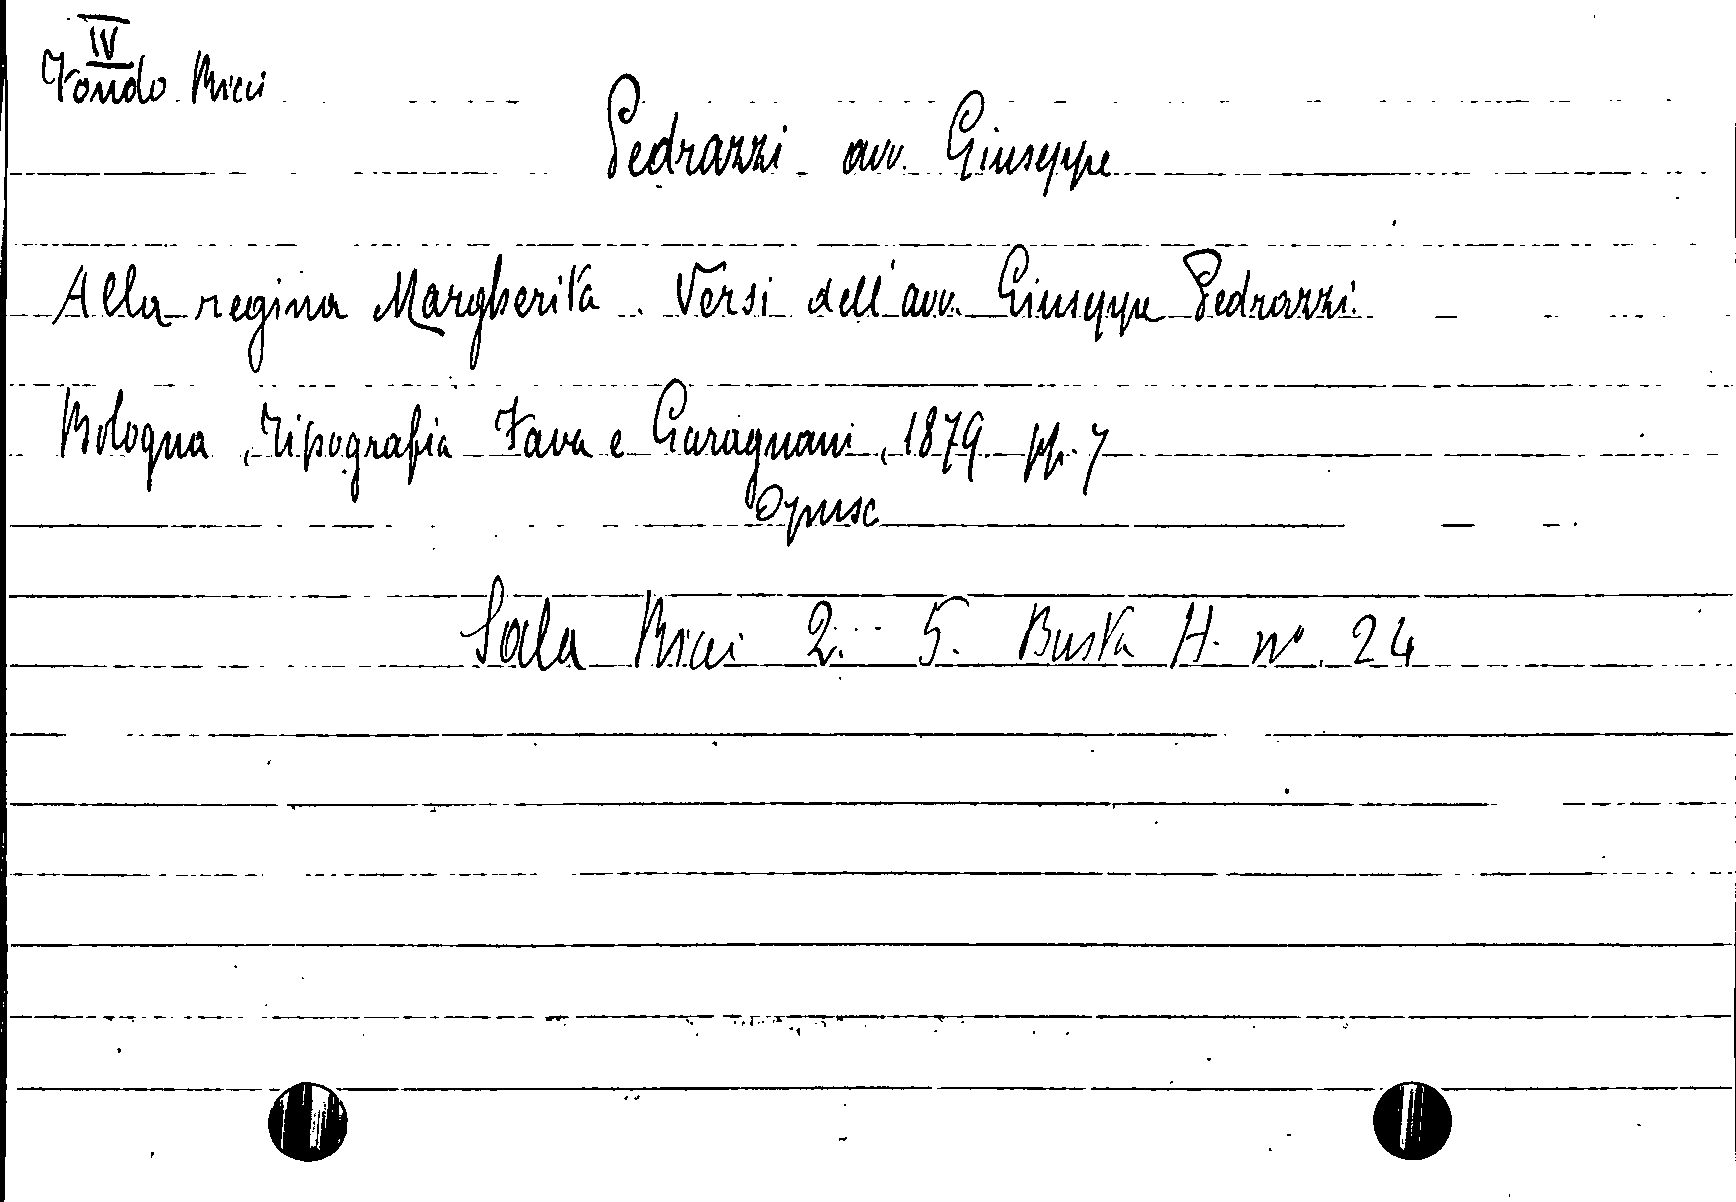 IV
Fondo Ricci
Pedrazzi avv. Giuseppe
Alla regina Margherita. Versi dell'avv. Giuseppe Pedrazzi.
Bologna, Tipografia Fava e Garagnani, 1879 pp. 7
Opusc
Sala Ricci 2. 5. Busta H. n° 24